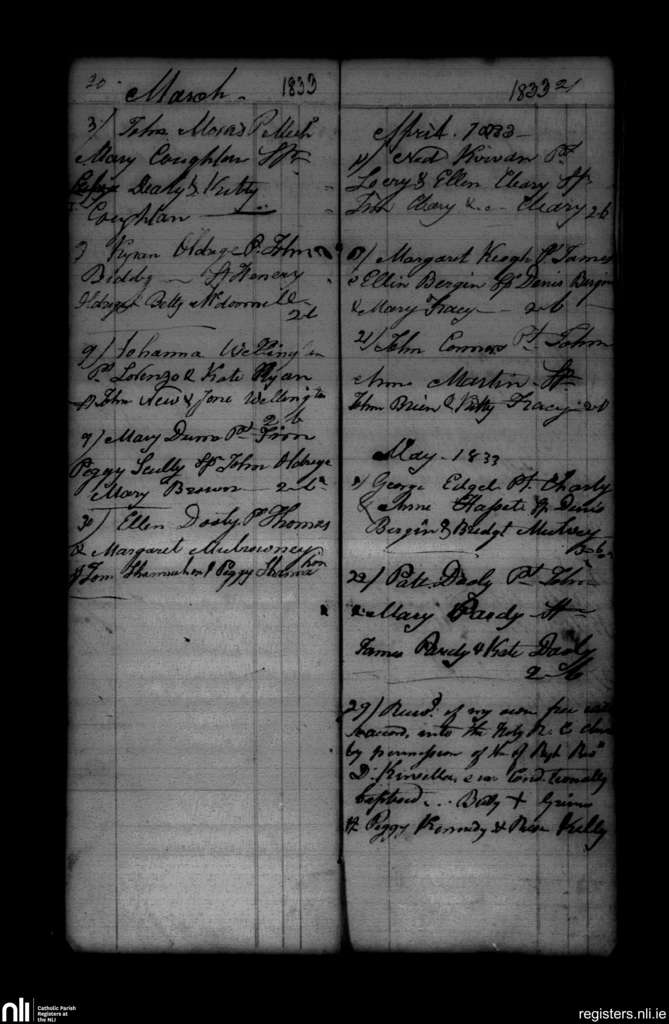 20 March 1833
3/ John Moras P. Mich
Mary Coughlan Sp
Dealy & Kitty
Coughlan
9 Kyran Oldrge P. John
Biddy Sp Henery
Oldrge & Betty McDonnell
2 6
9/ Johanna Wellington
Ps Lorenzo & Kate Ryan
Sp John New & Jone Wellington
2 6
9/ Mary Dunn Pt
Peggy Scully Sp John Oldrege
Mary Brown 2-6
30/ Ellen Dooly P Thomas
& Margaret Mulrowney
Sp Tom Shanahan & Peggy
1833 21
April 1833
14/ Ned Kirwan Pt
& Ellen Cleary Sp
Cleary & Cleary 2 6
Margaret Keogh P James
& Ellin Bergin Sp Denis Bergin
& Mary Tracey 2-6
21/ John Connors Pt John
Anne Martin Sp
John Brien & Kitty Tracey 2-6
May 1833
George Edge Pt Charly
& Anne Sp Denis
Bergin & Bridgt Mulvey
2-6
22/ Patt Dooly Pt John
& Mary Pardy Sp
James Pardy & Kate Dooly
2-6
29/ of my own free
into the Holy R. C
by permission of the Right Revd
Dr Kinsella, & Conditionally
baptised Betty +
Sp Peggy Kennedy & Kelly
nli
Catholic Parish
Registers at
the NLI
registers.nli.ie